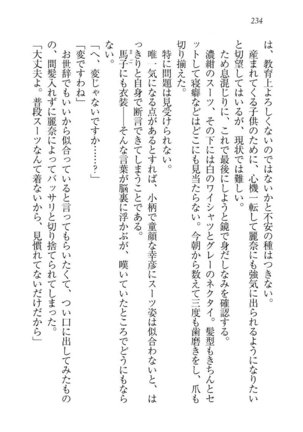 234
は、教育上よろしくないのではないかと不安の種はつきない。
産まれてくる子供のために、心機一転して麗奈にも強気に出られるようになりたい
と切望してはいるが、現状では難しい。
ため息混じりに、これで最後にしようと鏡で身だしなみを確認する。
濃紺のスーツ、その下には白のワイシャツとグレーのネクタイ。髪型もきちんとセ
ットして寝癖などはどこにも見当たらない。今朝から数えて三度も歯磨きをし、爪も
切り揃えた。
特に問題は見受けられない。
唯一気になる点があるとすれば、小柄で童顔な幸彦にスーツ姿は似合わないと、は
っきりと自身で断言できてしまうことである。
馬子にも衣装――そんな言葉が脳裏に浮かぶが、嘆いていたところでどうにもなら
ない。
「へ、変じゃないですか……?」
「変ですわね」
お世辞でもいいから似合っていると言ってもらいたくて、つい口に出してみたもの
の、間髪入れずに麗奈によってバッサリと切り捨てられてしまった。
「大丈夫よ。普段スーツなんて着ないから、見慣れてないだけだから」